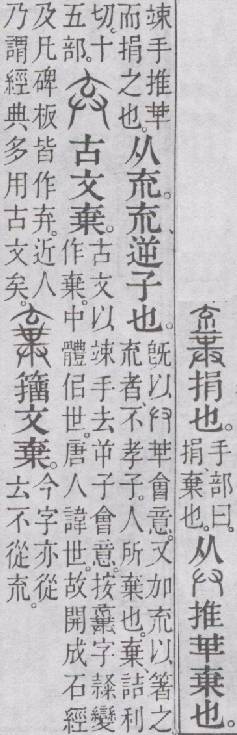 捐也。手部曰。捐棄也。从𠬞推𠦒棄也。
竦手推𠦒而捐之也。从㐬。㐬、逆子也。旣以𠬞𠦒會意。又加㐬以箸之㐬者不孝子。人所棄也。棄詰利
切。十五部。古文棄。古文以竦手去屰子會意。按字隸變作棄。中體侣世。唐人諱世。故開成石經
及凡碑板皆作弃。近人乃謂經典多用古文矣。籒文棄。今字亦从去不從㐬。